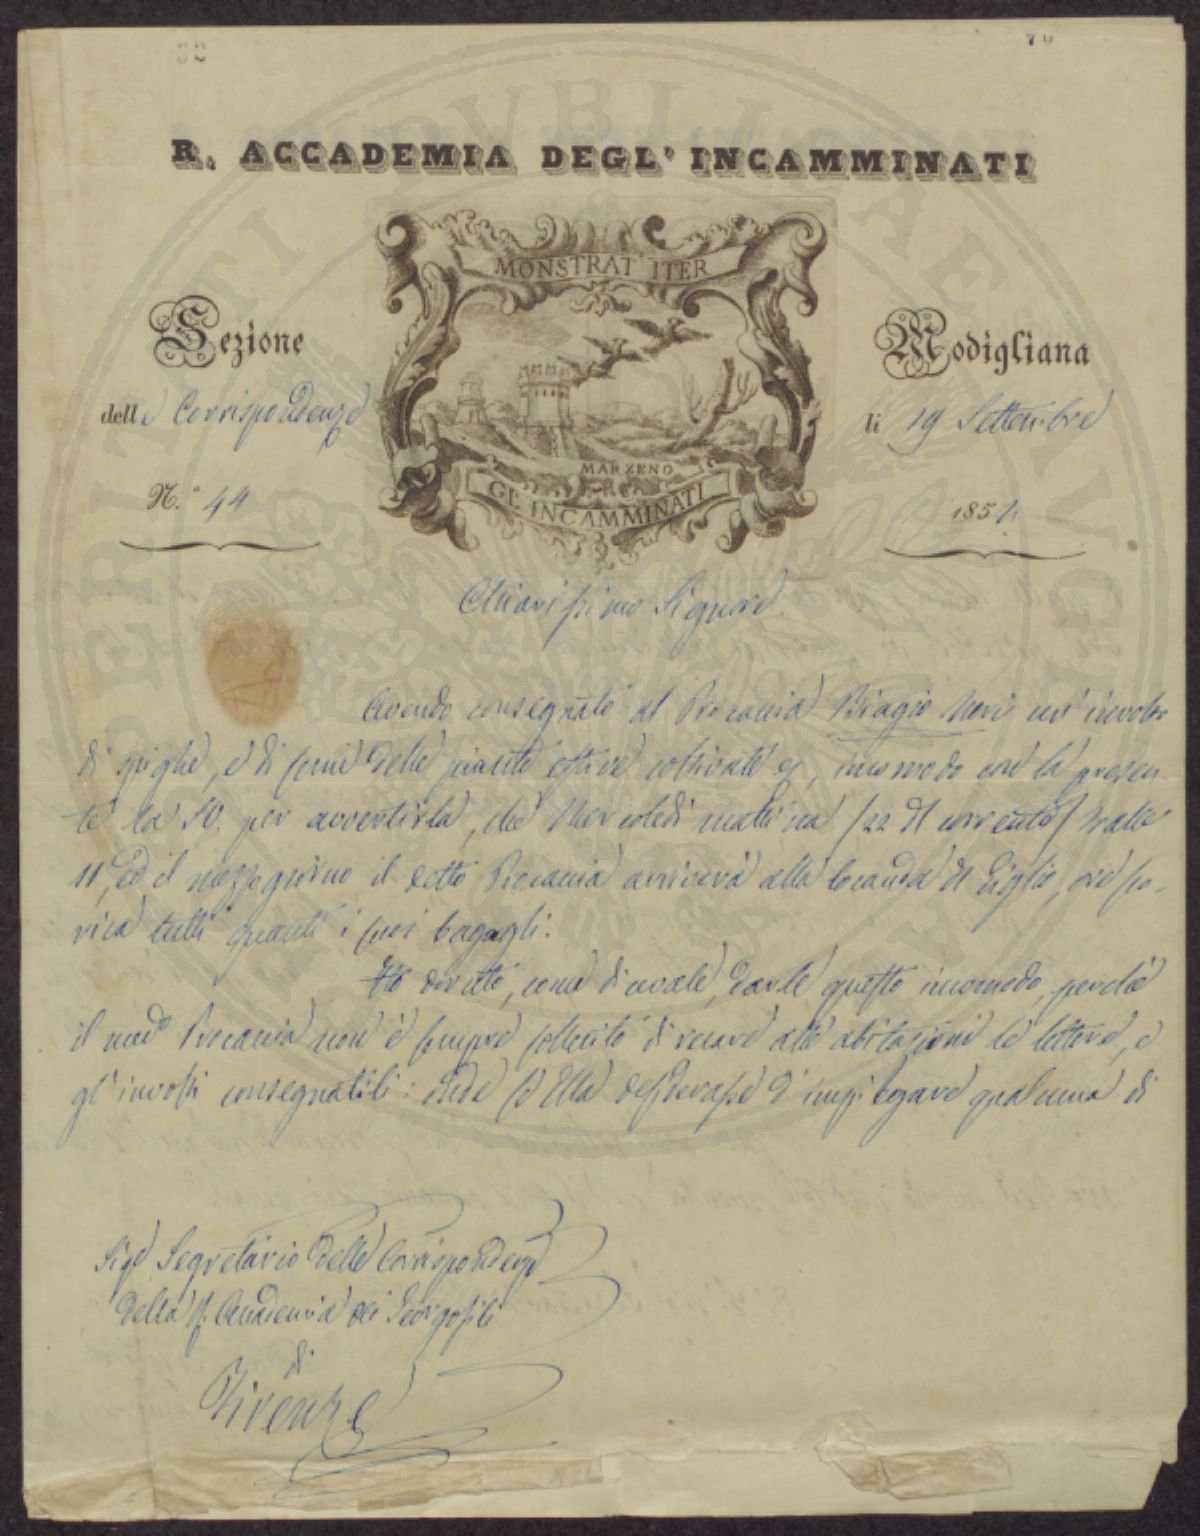 R. ACCADEMIA DEGL' INCAMMINATI
MONSTRAT ITER
Sezione
delle Corrispondenze
N.° 44
MARZENO
GL' INCAMMINATI
Modigliana
li 19 Settembre
185
Chiarissimo Signore.
Avendo consegnato al Procaccia Biagio Neri un involto
di spighe, e di semi delle piante estive coltivate, incomodo con la presen-
te la SV. per avvertirla, che Mercoledì mattina /22 del corrente/ tralle
11, ed il mezzogiorno il detto Procaccia arriverà alla locanda del Giglio, ove sca-
rica tutti quanti i suoi bagagli.
Ho dovuto, come di, darle questo incomodo, perchè
il Procaccia non è sempre sollecito di recare alle abitazioni le lettere, e
gl'involti consegnatili: onde se Ella desiderasse d'impiegare qualcuna di
Sigre Segretario delle Corrispondenze
della R. Accademia dei Georgofili
di
Firenze